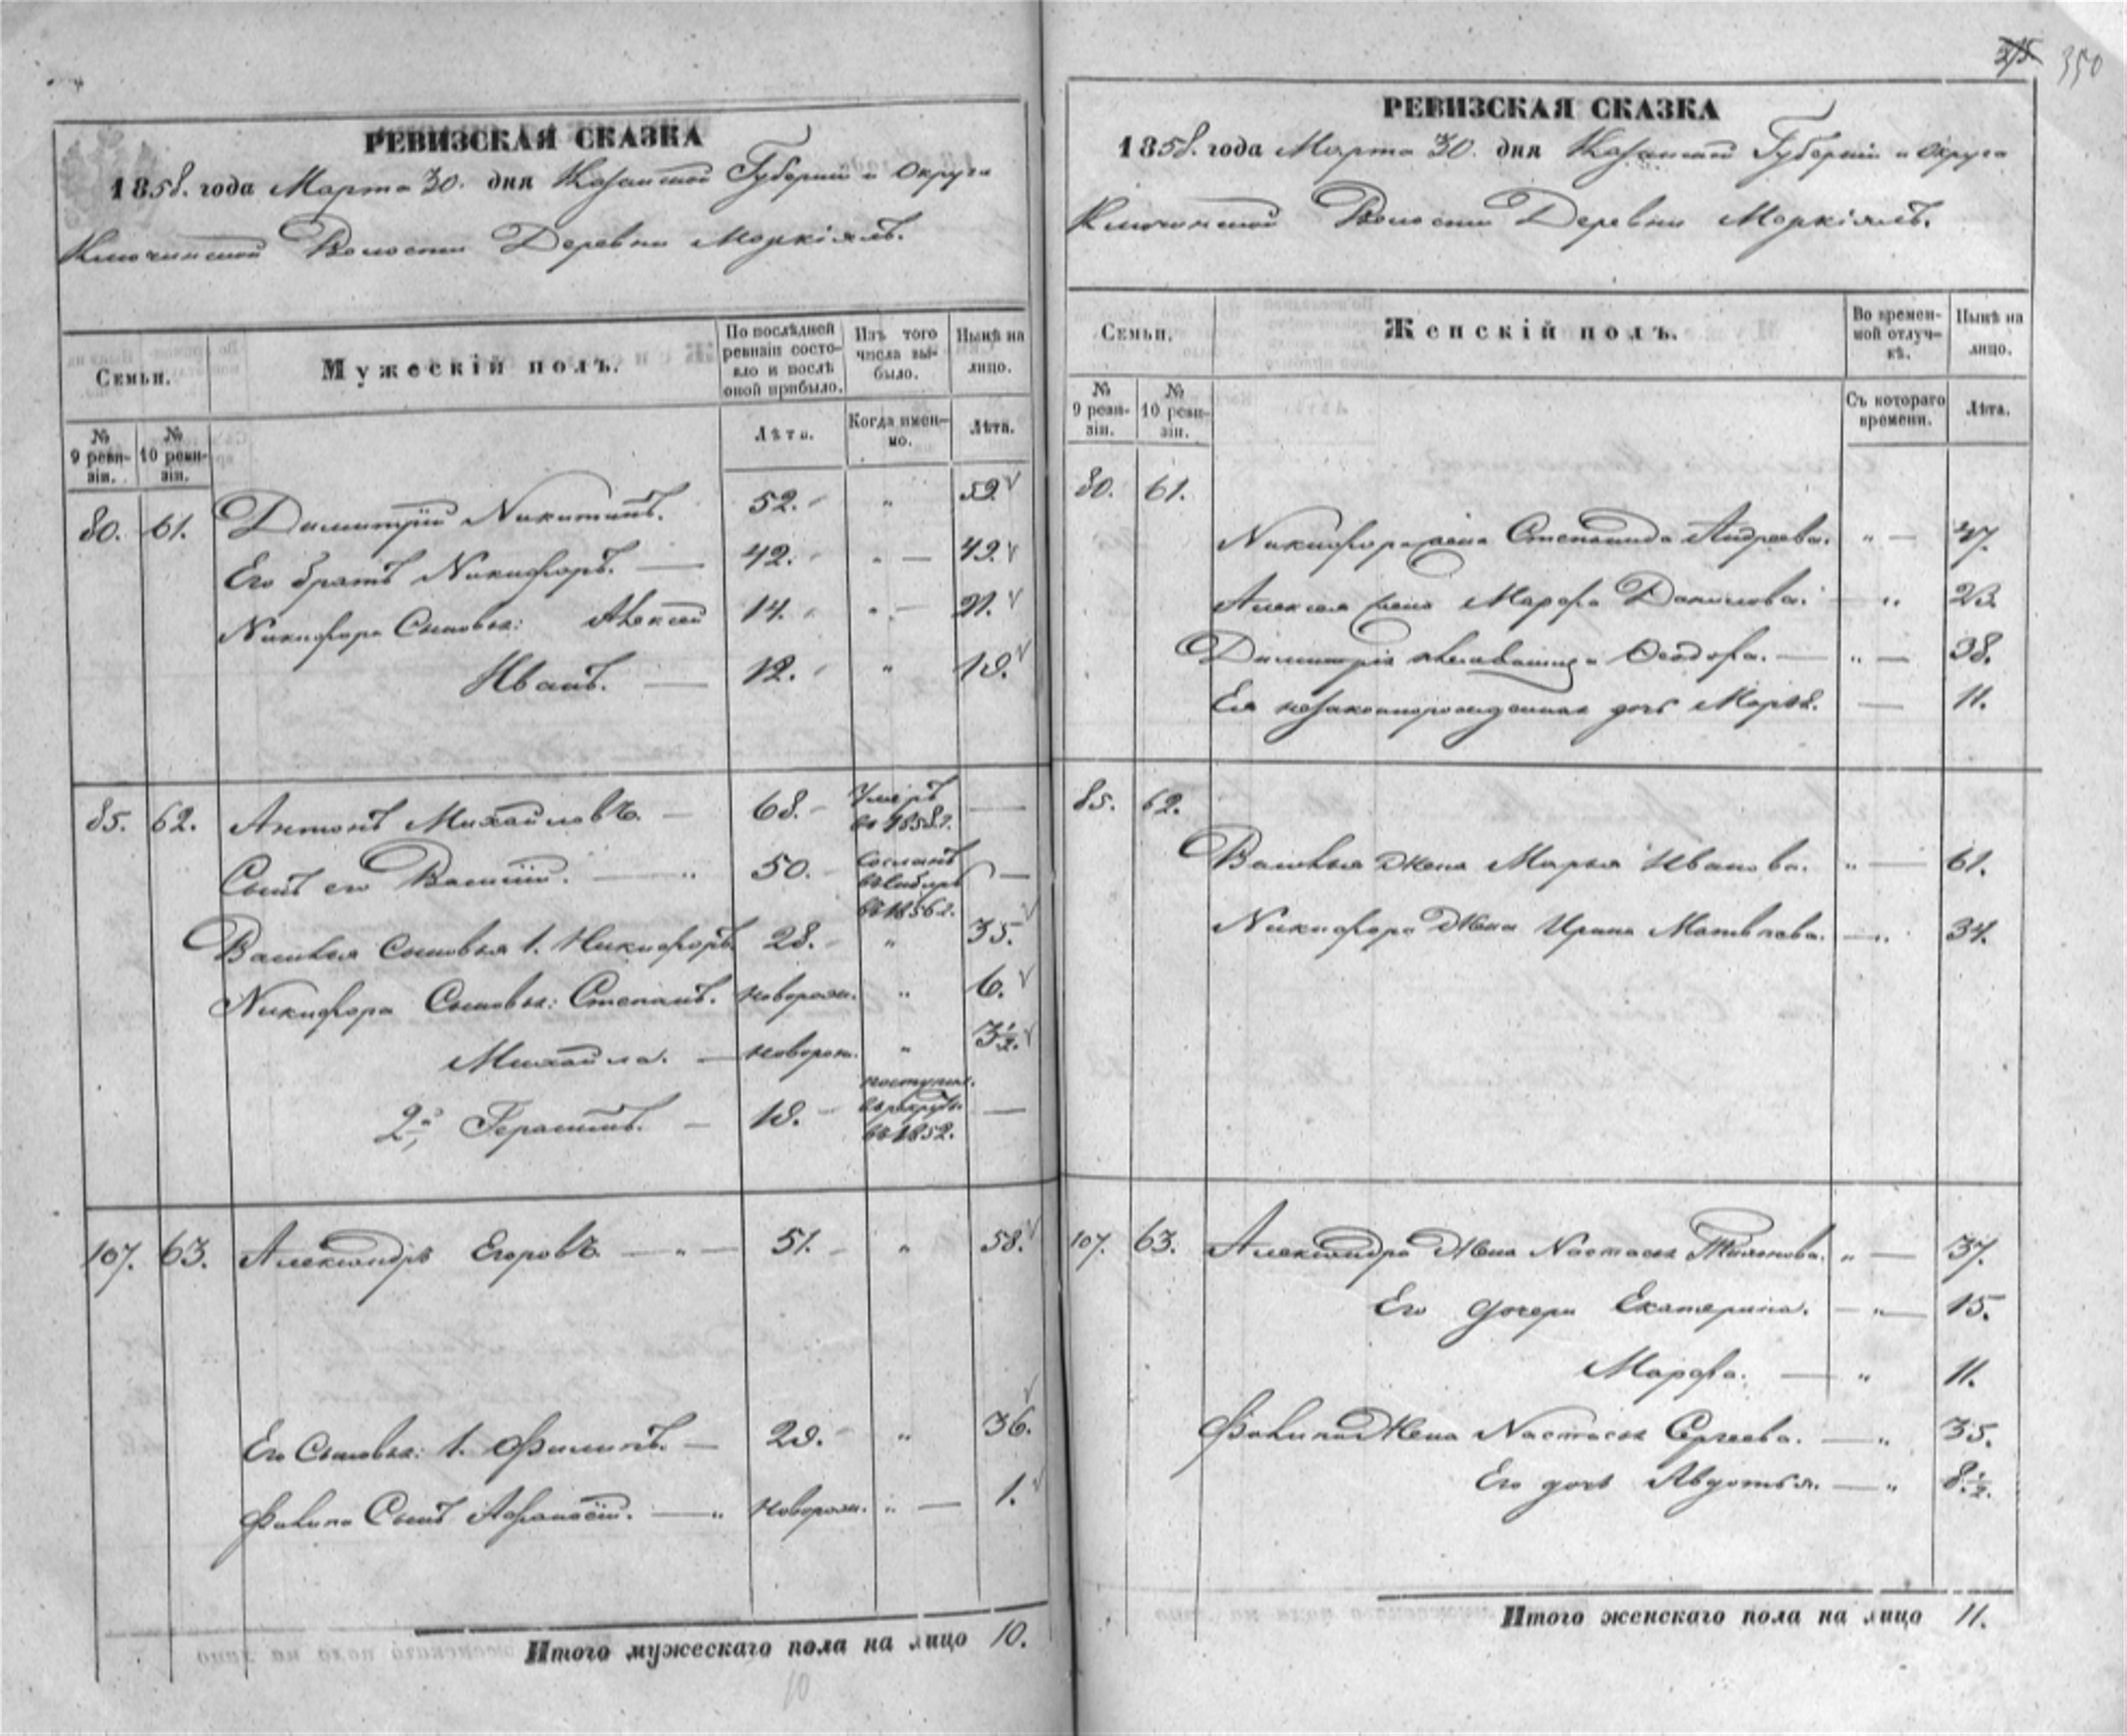 350
РЕВИЗСКАЯ СКАЗКА
1858. года Марта 30. дня Казанской Губернии и Округа
Ключинской Волости Деревни Моркіялъ.
Семьи.
Мужескій полъ.
По послѣдней ревизіи состояло и послѣ оной прибыло.
Изъ того числа выбыло.
Нынѣ на лицо.
№ 9 ревизіи.
№ 10 ревизіи.
Лѣта.
Когда именно.
Лѣта.
80. 61. Димитрій Никитинъ. 52. " 59.
Его братъ Никифоръ. — 42. " — 49.
Никифора Сыновья: Алексѣй 14. " — 21.
Иванъ. — 12. " 19.
85. 62. Антонъ Михайловъ. — 68. Умеръ въ 1858 г. —
Сынъ его Василій. — " 50. Сосланъ въ Сибирь въ 1856 г. —
Василья Сыновья 1. Никифоръ 28. " 35.
Никифора Сыновья: Степанъ. новорож. " 6.
Михайла. — новорож. " 3½.
2й Герасимъ. — 18. поступил. въ рекруты въ 1852. —
107. 63. Александръ Егоровъ — " — 51. " 58.
Его Сыновья: 1. Филипъ. — 29. " 36.
Филипа Сынъ Афанасій. — " новорож. " — 1.
Итого мужескаго пола на лицо 10.
10
РЕВИЗСКАЯ СКАЗКА
1858. года Марта 30. дня Казанской Губерніи и Округа
Ключинской Волости Деревни Моркіялъ.
Семьи.
Женскій полъ.
Во временной отлучкѣ.
Нынѣ на лицо.
№ 9 ревизіи.
№ 10 ревизіи.
Съ котораго времени.
Лѣта.
80. 61.
Никифора жена Степанида Андреева. " — 47.
Алексѣя жена Марфа Данилова. — " 23.
Димитрія Ѳеодора. — " — 38.
Ея незаконнорожденная дочь Марья. — 11.
85. 62.
Василья Жена Марья Иванова. " — 61.
Никифора Жена Ирина Матвѣева. — " 34.
107. 63. Александра Жена Настасья Тихонова. " — 37.
Его дочери Екатерина. — " — 15.
Марфа. — " 11.
Филипа Жена Настасья Сергеева. — " 35.
Его дочь Авдотья. — " 8½.
Итого женскаго пола на лицо 11.